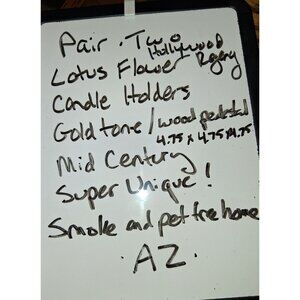 Pair . Two
Hollywood
Regency
Lotus Flower
Candle Holders
Goldtone / wood pedestal
4.75 x 4.75 x 4.75
Mid Century
Super Unique!
Smoke and pet free home
. AZ .